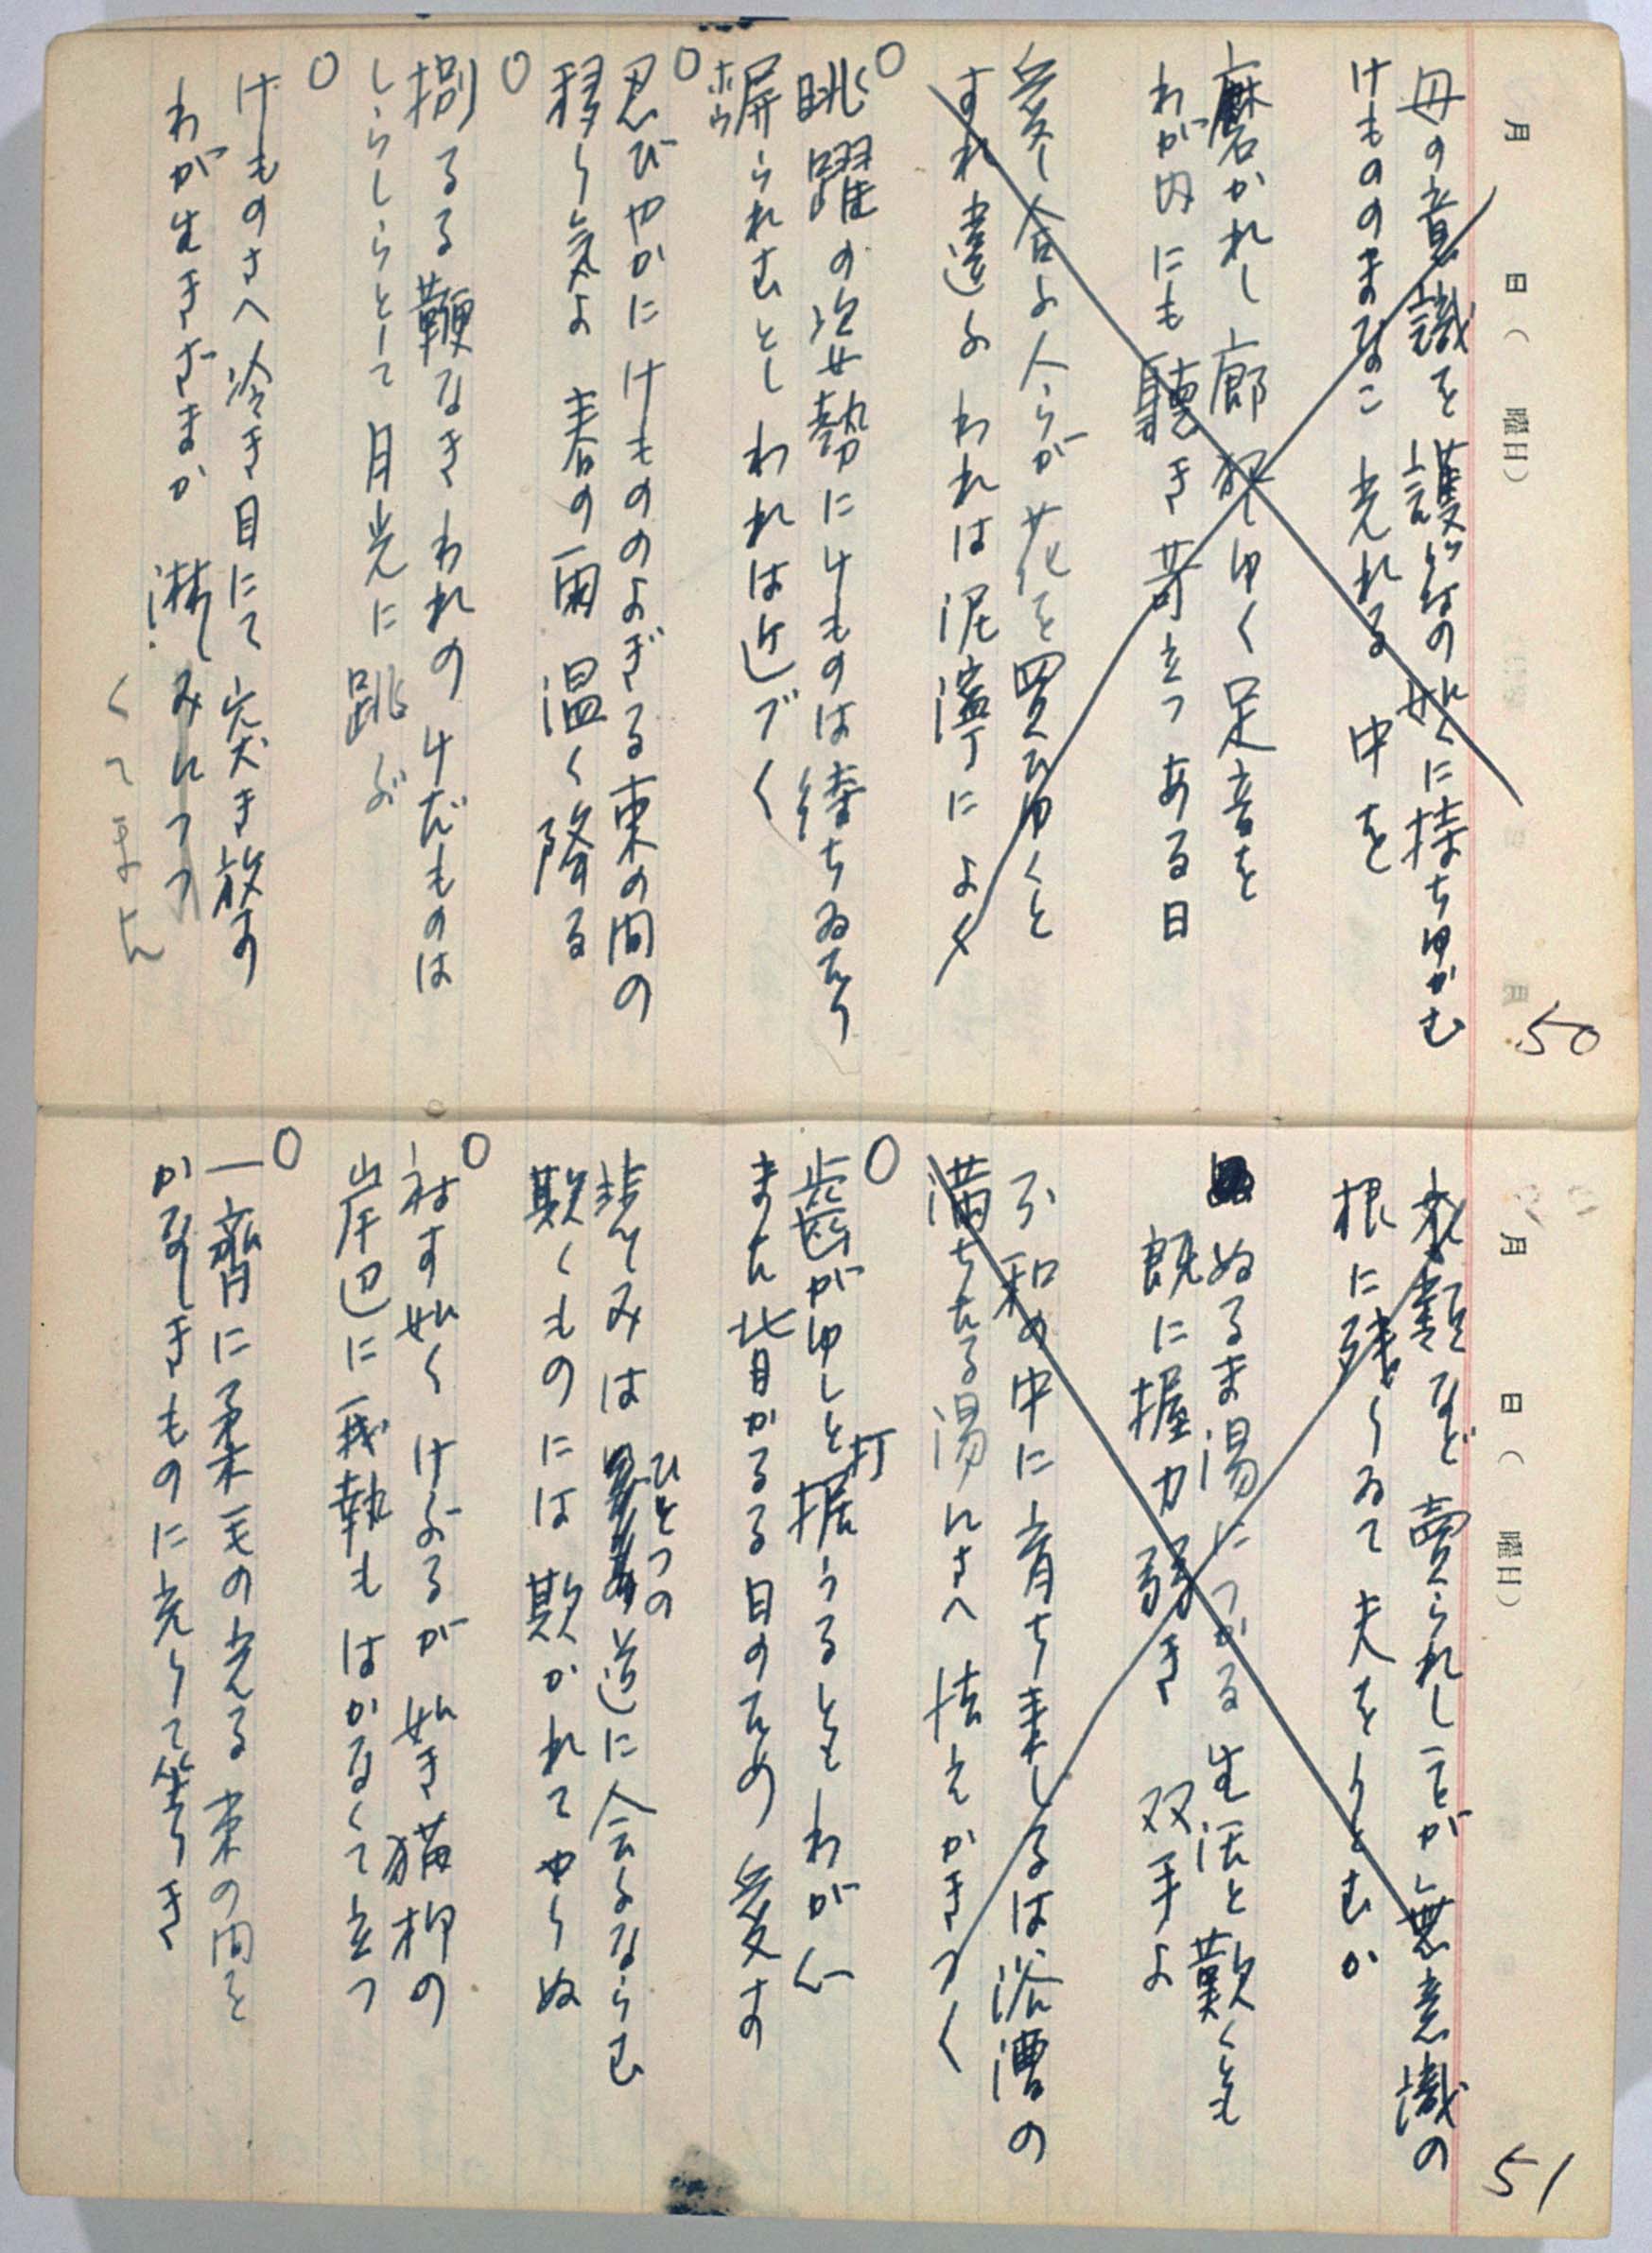 月 日( 曜日)
50
母の意識を護符の如に持ちゆかむ
けもののまなこ光れる 中を
磨かれし廊 犯しゆく足音を
わが内にも聴き 苛立つ ある日
笑ひ合ふ人らが花を買ひゆくと
すれ違ふ われは泥濘によく
○
眺躍の姿勢にけものは待ちゐたり
屏られむとし われは近づく
ホウ
○
忍びやかに けもののよぎる束の間の
移り気よ 春の雨 温く降る
○
捌るる鞭なき われの けだものは
しらしらとして 月光に 跳ぶ
○
けものさへ冷き目にて 突き放す
わが生きざまか 淋しみにつつ
くてまた
月 日( 曜日)
51
衣類など 賣られしことが 無意識の
根に残りゐて 夫をりとむか
ぬるま湯につかる 生活と歎くとも
既に握力弱き 双手よ
不和の中に育ち来しるは浴漕の
満ちたる湯にさへ 怯えかきつく
○
歯がゆしと打据うるとも わが心
また背かるる日のため 愛す
歩てみは ひとつの道に会ふならむ
欺くものには 欺かれてやらぬ
○
衬す如く けぶるが如き猫柳の
岸辺に 我執も はかなくて立つ
○
一齊に柔毛の光る 束の間を
かなしきものに 光りて笑りき